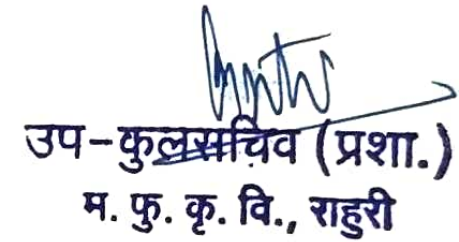 उप-कुलसचिव (प्रशा.)
म. फु. कृ. वि., राहुरी